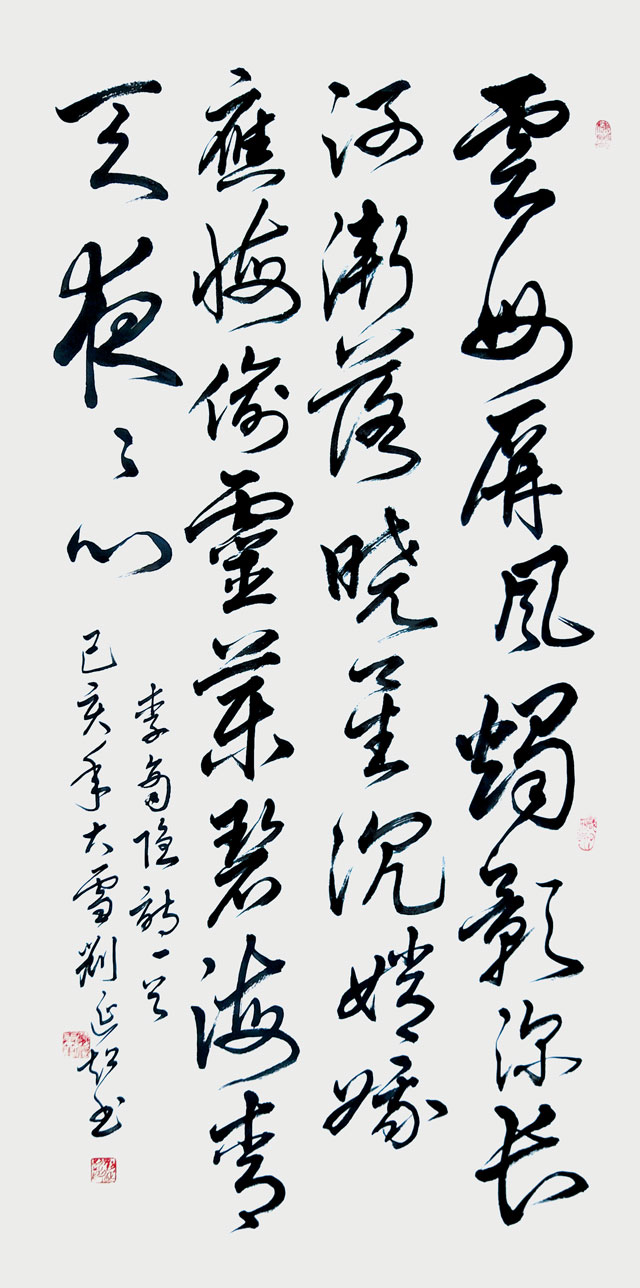 雲母屏風燭影深長
河漸落曉星沉嫦娥
應悔偷靈藥碧海青
天夜々心
李商隐詩一首
己亥年大雪劉延超书